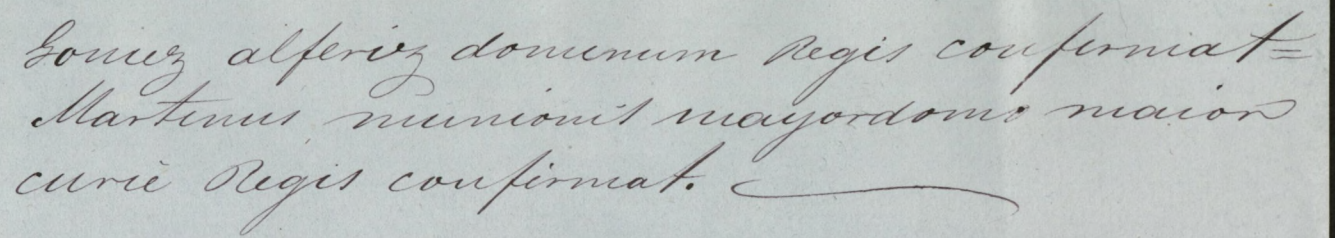 Gomez alferiz domenum Regis confirmat=
Martinus munionis mayordomo maior
curie Regis confirmat.